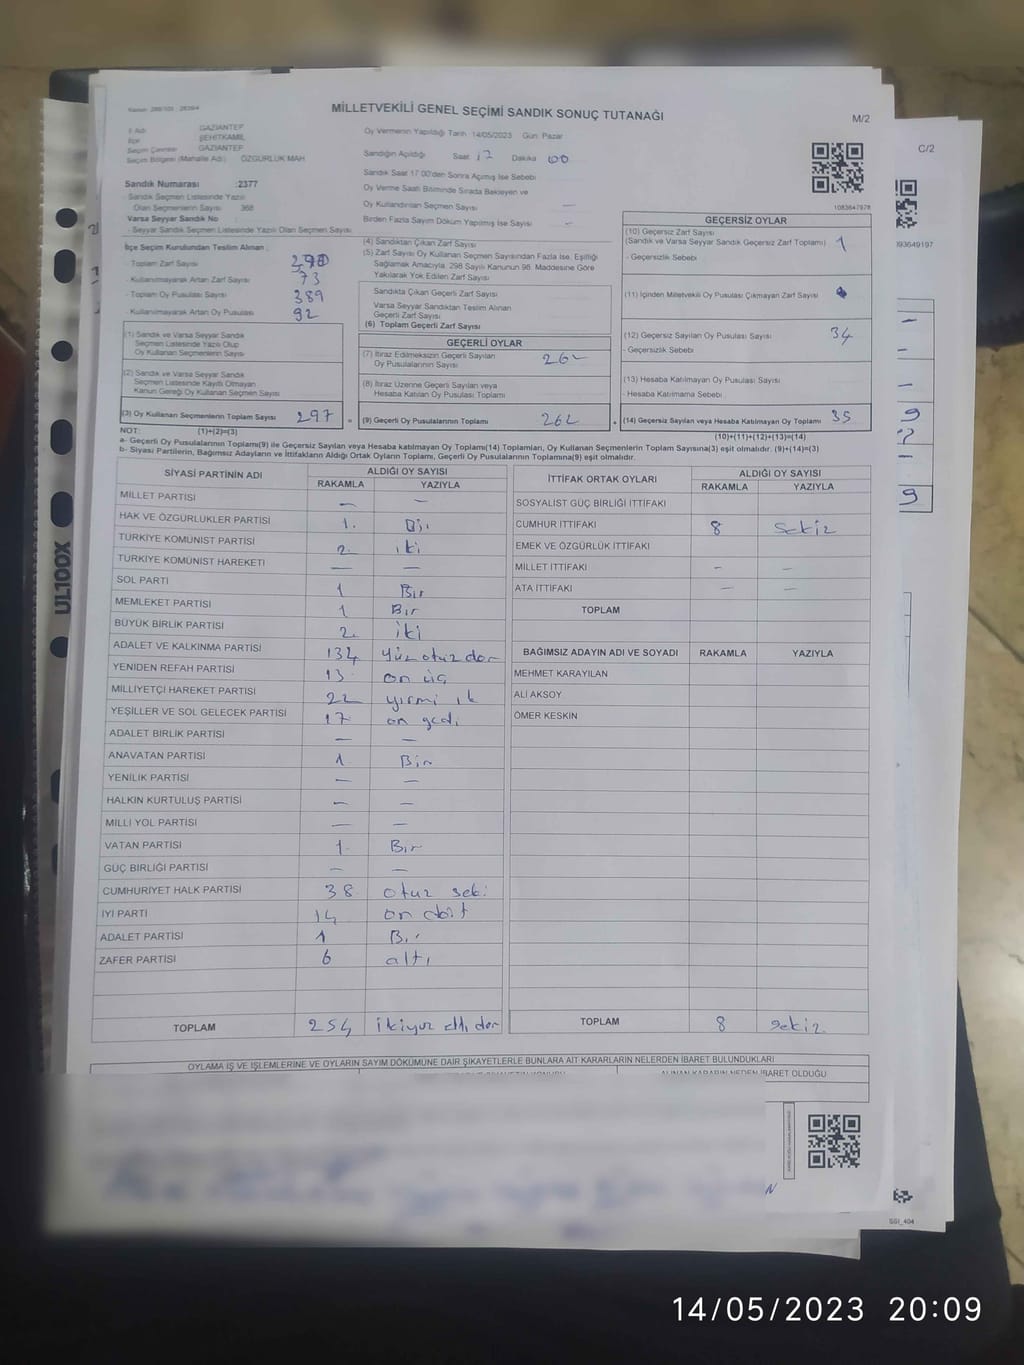 MİLLETVEKİLİ GENEL SEÇİMİ SANDIK SONUÇ TUTANAĞI
M/2
C/2
GAZİANTEP
ŞEHİTKAMİL
GAZİANTEP
Seçim Bölgesi (Mahalle Adı) ÖZGÜRLÜK MAH
Oy Vermenin Yapıldığı Tarih 14/05/2023 Gün Pazar
Sandığın Açıldığı Saat 17 Dakika 00
Sandık Saat 17.00'den Sonra Açılmış İse Sebebi
Oy Verme Saati Bitiminde Sırada Bekleyen ve
Oy Kullandırılan Seçmen Sayısı —
Birden Fazla Sayım Döküm Yapılmış İse Sayısı —
1083647978
Sandık Numarası :2377
Sandık Seçmen Listesinde Yazılı
Olan Seçmenlerin Sayısı 368
Varsa Seyyar Sandık No
- Seyyar Sandık Seçmen Listesinde Yazılı Olan Seçmen Sayısı
İlçe Seçim Kurulundan Teslim Alınan
- Toplam Zarf Sayısı
- Kullanılmayarak Artan Zarf Sayısı 73
- Toplam Oy Pusulası Sayısı 389
- Kullanılmayarak Artan Oy Pusulası 92
(1) Sandık ve Varsa Seyyar Sandık
Seçmen Listesinde Yazılı Olup
Oy Kullanan Seçmenlerin Sayısı
(2) Sandık ve Varsa Seyyar Sandık
Seçmen Listesinde Kayıtlı Olmayan
Kanun Gereği Oy Kullanan Seçmen Sayısı
(3) Oy Kullanan Seçmenlerin Toplam Sayısı 297
(4) Sandıktan Çıkan Zarf Sayısı
(5) Zarf Sayısı Oy Kullanan Seçmen Sayısından Fazla İse, Eşitliği
Sağlamak Amacıyla, 298 Sayılı Kanunun 98. Maddesine Göre
Yakılarak Yok Edilen Zarf Sayısı
Sandıkta Çıkan Geçerli Zarf Sayısı
Varsa Seyyar Sandıktan Teslim Alınan
Geçerli Zarf Sayısı
(6) Toplam Geçerli Zarf Sayısı
GEÇERLİ OYLAR
(7) İtiraz Edilmeksizin Geçerli Sayılan
Oy Pusulalarının Sayısı 262
(8) İtiraz Üzerine Geçerli Sayılan veya
Hesaba Katılan Oy Pusulası Toplamı
= (9) Geçerli Oy Pusulalarının Toplamı 262
GEÇERSİZ OYLAR
(10) Geçersiz Zarf Sayısı
(Sandık ve Varsa Seyyar Sandık Geçersiz Zarf Toplamı) 1
- Geçersizlik Sebebi
(11) İçinden Milletvekili Oy Pusulası Çıkmayan Zarf Sayısı
(12) Geçersiz Sayılan Oy Pusulası Sayısı 34
- Geçersizlik Sebebi
(13) Hesaba Katılmayan Oy Pusulası Sayısı
- Hesaba Katılmama Sebebi
+ (14) Geçersiz Sayılan veya Hesaba Katılmayan Oy Toplamı 35
NOT: (1)+(2)=(3)
(10)+(11)+(12)+(13)=(14)
a- Geçerli Oy Pusulalarının Toplamı(9) ile Geçersiz Sayılan veya Hesaba katılmayan Oy Toplamı(14) Toplamları, Oy Kullanan Seçmenlerin Toplam Sayısına(3) eşit olmalıdır. (9)+(14)=(3)
b- Siyasi Partilerin, Bağımsız Adayların ve İttifakların Aldığı Ortak Oyların Toplamı, Geçerli Oy Pusulalarının Toplamına(9) eşit olmalıdır.
SİYASİ PARTİNİN ADI ALDIĞI OY SAYISI
RAKAMLA YAZIYLA
MİLLET PARTİSİ — —
HAK VE ÖZGÜRLÜKLER PARTİSİ 1. Bir
TÜRKİYE KOMÜNİST PARTİSİ 2. iki
TÜRKİYE KOMÜNİST HAREKETİ — —
SOL PARTİ 1 Bir
MEMLEKET PARTİSİ 1 Bir
BÜYÜK BİRLİK PARTİSİ 2. iki
ADALET VE KALKINMA PARTİSİ 134 yüz otuz dör
YENİDEN REFAH PARTİSİ 13 on üç
MİLLİYETÇİ HAREKET PARTİSİ 22 yirmi ik
YEŞİLLER VE SOL GELECEK PARTİSİ 17 on yedi
ADALET BİRLİK PARTİSİ — —
ANAVATAN PARTİSİ 1 Bir
YENİLİK PARTİSİ — —
HALKIN KURTULUŞ PARTİSİ — —
MİLLİ YOL PARTİSİ — —
VATAN PARTİSİ 1 Bir
GÜÇ BİRLİĞİ PARTİSİ — —
CUMHURİYET HALK PARTİSİ 38 otuz seki
İYİ PARTİ 14 on dört
ADALET PARTİSİ 1 Bir
ZAFER PARTİSİ 6 altı
TOPLAM 254 ikiyüz elli dör
İTTİFAK ORTAK OYLARI ALDIĞI OY SAYISI
RAKAMLA YAZIYLA
SOSYALİST GÜÇ BİRLİĞİ İTTİFAKI
CUMHUR İTTİFAKI 8 sekiz
EMEK VE ÖZGÜRLÜK İTTİFAKI
MİLLET İTTİFAKI — —
ATA İTTİFAKI — —
TOPLAM
BAĞIMSIZ ADAYIN ADI VE SOYADI RAKAMLA YAZIYLA
MEHMET KARAYILAN
ALİ AKSOY
ÖMER KESKİN
TOPLAM 8 sekiz
OYLAMA İŞ VE İŞLEMLERİNE VE OYLARIN SAYIM DÖKÜMÜNE DAİR ŞİKAYETLERLE BUNLARA AİT KARARLARIN NELERDEN İBARET BULUNDUKLARI
ALINAN KARARIN NEDEN İBARET OLDUĞU
UL100X
SSİ_404
14/05/2023 20:09